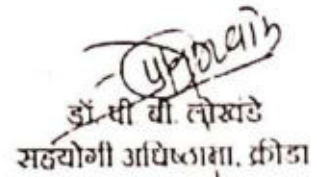 डॉ. पी बी. लोखंडे
सहयोगी अधिष्ठाता, क्रीडा